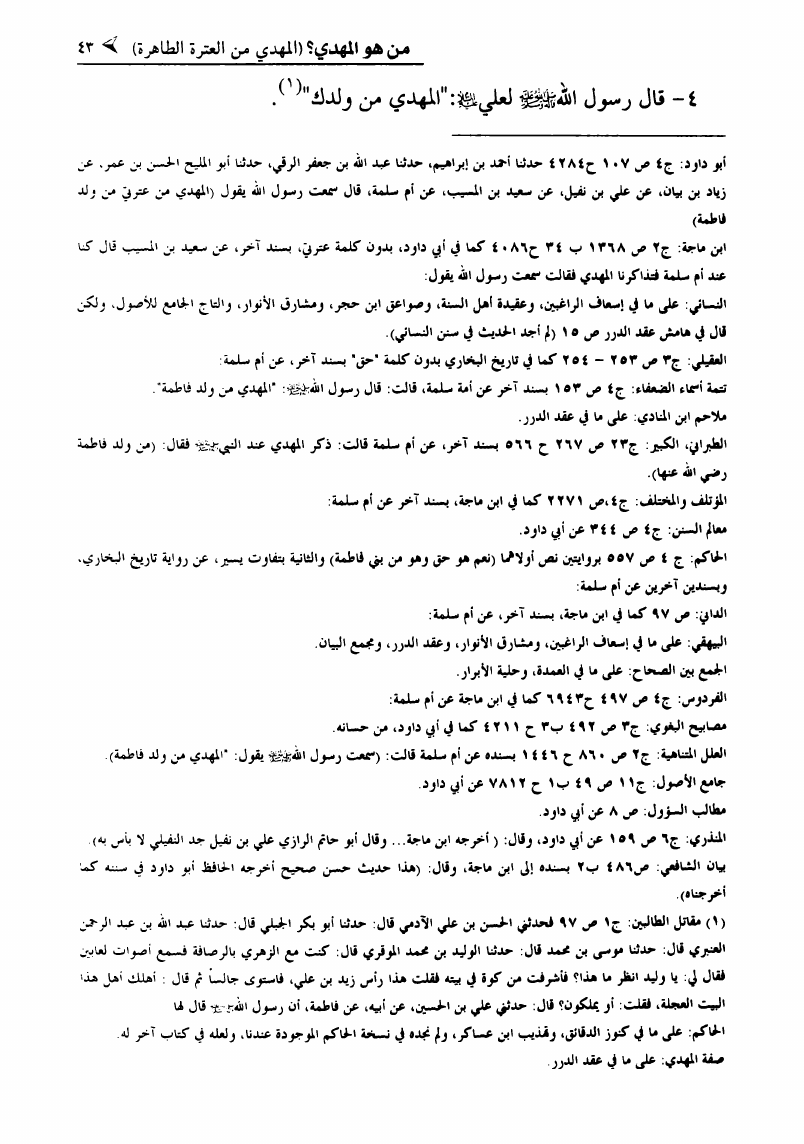 من هو المهدي؟ (المهدي من العترة الطاهرة) ⮜ ٤٣
٤– قال رسول اللهﷺ لعلي:"المهدي من ولدك"(١).
أبو داود: ج٤ ص ١٠٧ ح٤٢٨٤ حدثنا أحمد بن إبراهيم، حدثنا عبد الله بن جعفر الرقي، حدثنا أبو المليح الحسن بن عمر، عن
زياد بن بيان، عن علي بن نفيل، عن سعيد بن المسيب، عن أم سلمة، قال سمعت رسول الله يقول (المهدي من عترتي من ولد
فاطمة)
ابن ماجة: ج٢ ص ١٣٦٨ ب ٣٤ ح٤٠٨٦ كما في أبي داود، بدون كلمة عترتي، بسند آخر، عن سعيد بن المسيب قال كنا
عند أم سلمة فتذاكرنا المهدي فقالت سمعت رسول الله يقول:
النسائي: على ما في إسعاف الراغبين، وعقيدة أهل السنة، وصواعق ابن حجر، ومشارق الأنوار، والتاج الجامع للأصول، ولكن
قال في هامش عقد الدرر ص ١٥ (لم أجد الحديث في سنن النسائي).
العقيلي: ج٣ ص ٢٥٣ – ٢٥٤ كما في تاريخ البخاري بدون كلمة "حق" بسند آخر، عن أم سلمة:
تتمة أسماء الضعفاء: ج٤ ص ١٥٣ بسند آخر عن أمة سلمة، قالت: قال رسول اللهﷺ: "المهدي من ولد فاطمة".
ملاحم ابن المنادي: على ما في عقد الدرر.
الطبراني، الكبير: ج٢٣ ص ٢٦٧ ح ٥٦٦ بسند آخر، عن أم سلمة قالت: ذكر المهدي عند النبيﷺ فقال: (من ولد فاطمة
رضي الله عنها).
المؤتلف والمختلف: ج٤،ص ٢٢٧١ كما في ابن ماجة، بسند آخر عن أم سلمة:
معالم السنن: ج٤ ص ٣٤٤ عن أبي داود.
الحاكم: ج ٤ ص ٥٥٧ بروايتين نص أولاهما (نعم هو حق وهو من بني فاطمة) والثانية بتفاوت يسير، عن رواية تاريخ البخاري،
وبسندين آخرين عن أم سلمة:
الداني: ص ٩٧ كما في ابن ماجة، بسند آخر، عن أم سلمة:
البيهقي: على ما في إسعاف الراغبين، ومشارق الأنوار، وعقد الدرر، ومجمع البيان.
الجمع بين الصحاح: على ما في العمدة، وحلية الأبرار.
الفردوس: ج٤ ص ٤٩٧ ح٦٩٤٣ كما في ابن ماجة عن أم سلمة:
مصابيح البغوي: ج٣ ص ٤٩٢ ب٣ ح ٤٢١١ كما في أبي داود، من حسانه.
العلل المتناهية: ج٢ ص ٨٦٠ ح ١٤٤٦ بسنده عن أم سلمة قالت: (سمعت رسول اللهﷺ يقول: "المهدي من ولد فاطمة).
جامع الأصول: ج١١ ص ٤٩ ب١ ح ٧٨١٢ عن أبي داود.
مطالب السؤول: ص ٨ عن أبي داود.
المنذري: ج٦ ص ١٥٩ عن أبي داود، وقال: ( أخرجه ابن ماجة... وقال أبو حاتم الرازي علي بن نفيل جد النفيلي لا بأس به).
بيان الشافعي: ص٤٨٦ ب٢ بسنده إلى ابن ماجة، وقال: (هذا حديث حسن صحيح أخرجه الحافظ أبو داود في سننه كما
أخرجناه).
(١) مقاتل الطالبين: ج١ ص ٩٧ فحدثني الحسن بن علي الآدمي قال: حدثنا أبو بكر الجبلي قال: حدثنا عبد الله بن عبد الرحمن
العنبري قال: حدثنا موسى بن محمد قال: حدثنا الوليد بن محمد الموقري قال: كنت مع الزهري بالرصافة فسمع أصوات لعابين
فقال لي: يا وليد انظر ما هذا؟ فأشرفت من كوة في بيته فقلت هذا رأس زيد بن علي، فاستوى جالساً ثم قال : أهلك أهل هذا
البيت العجلة، فقلت: أو يملكون؟ قال: حدثني علي بن الحسين، عن أبيه، عن فاطمة، أن رسول اللهﷺ قال لها
الحاكم: على ما في كنوز الدقائق، وتهذيب ابن عساكر، ولم نجده في نسخة الحاكم الموجودة عندنا، ولعله في كتاب آخر له.
صفة المهدي: على ما في عقد الدرر.